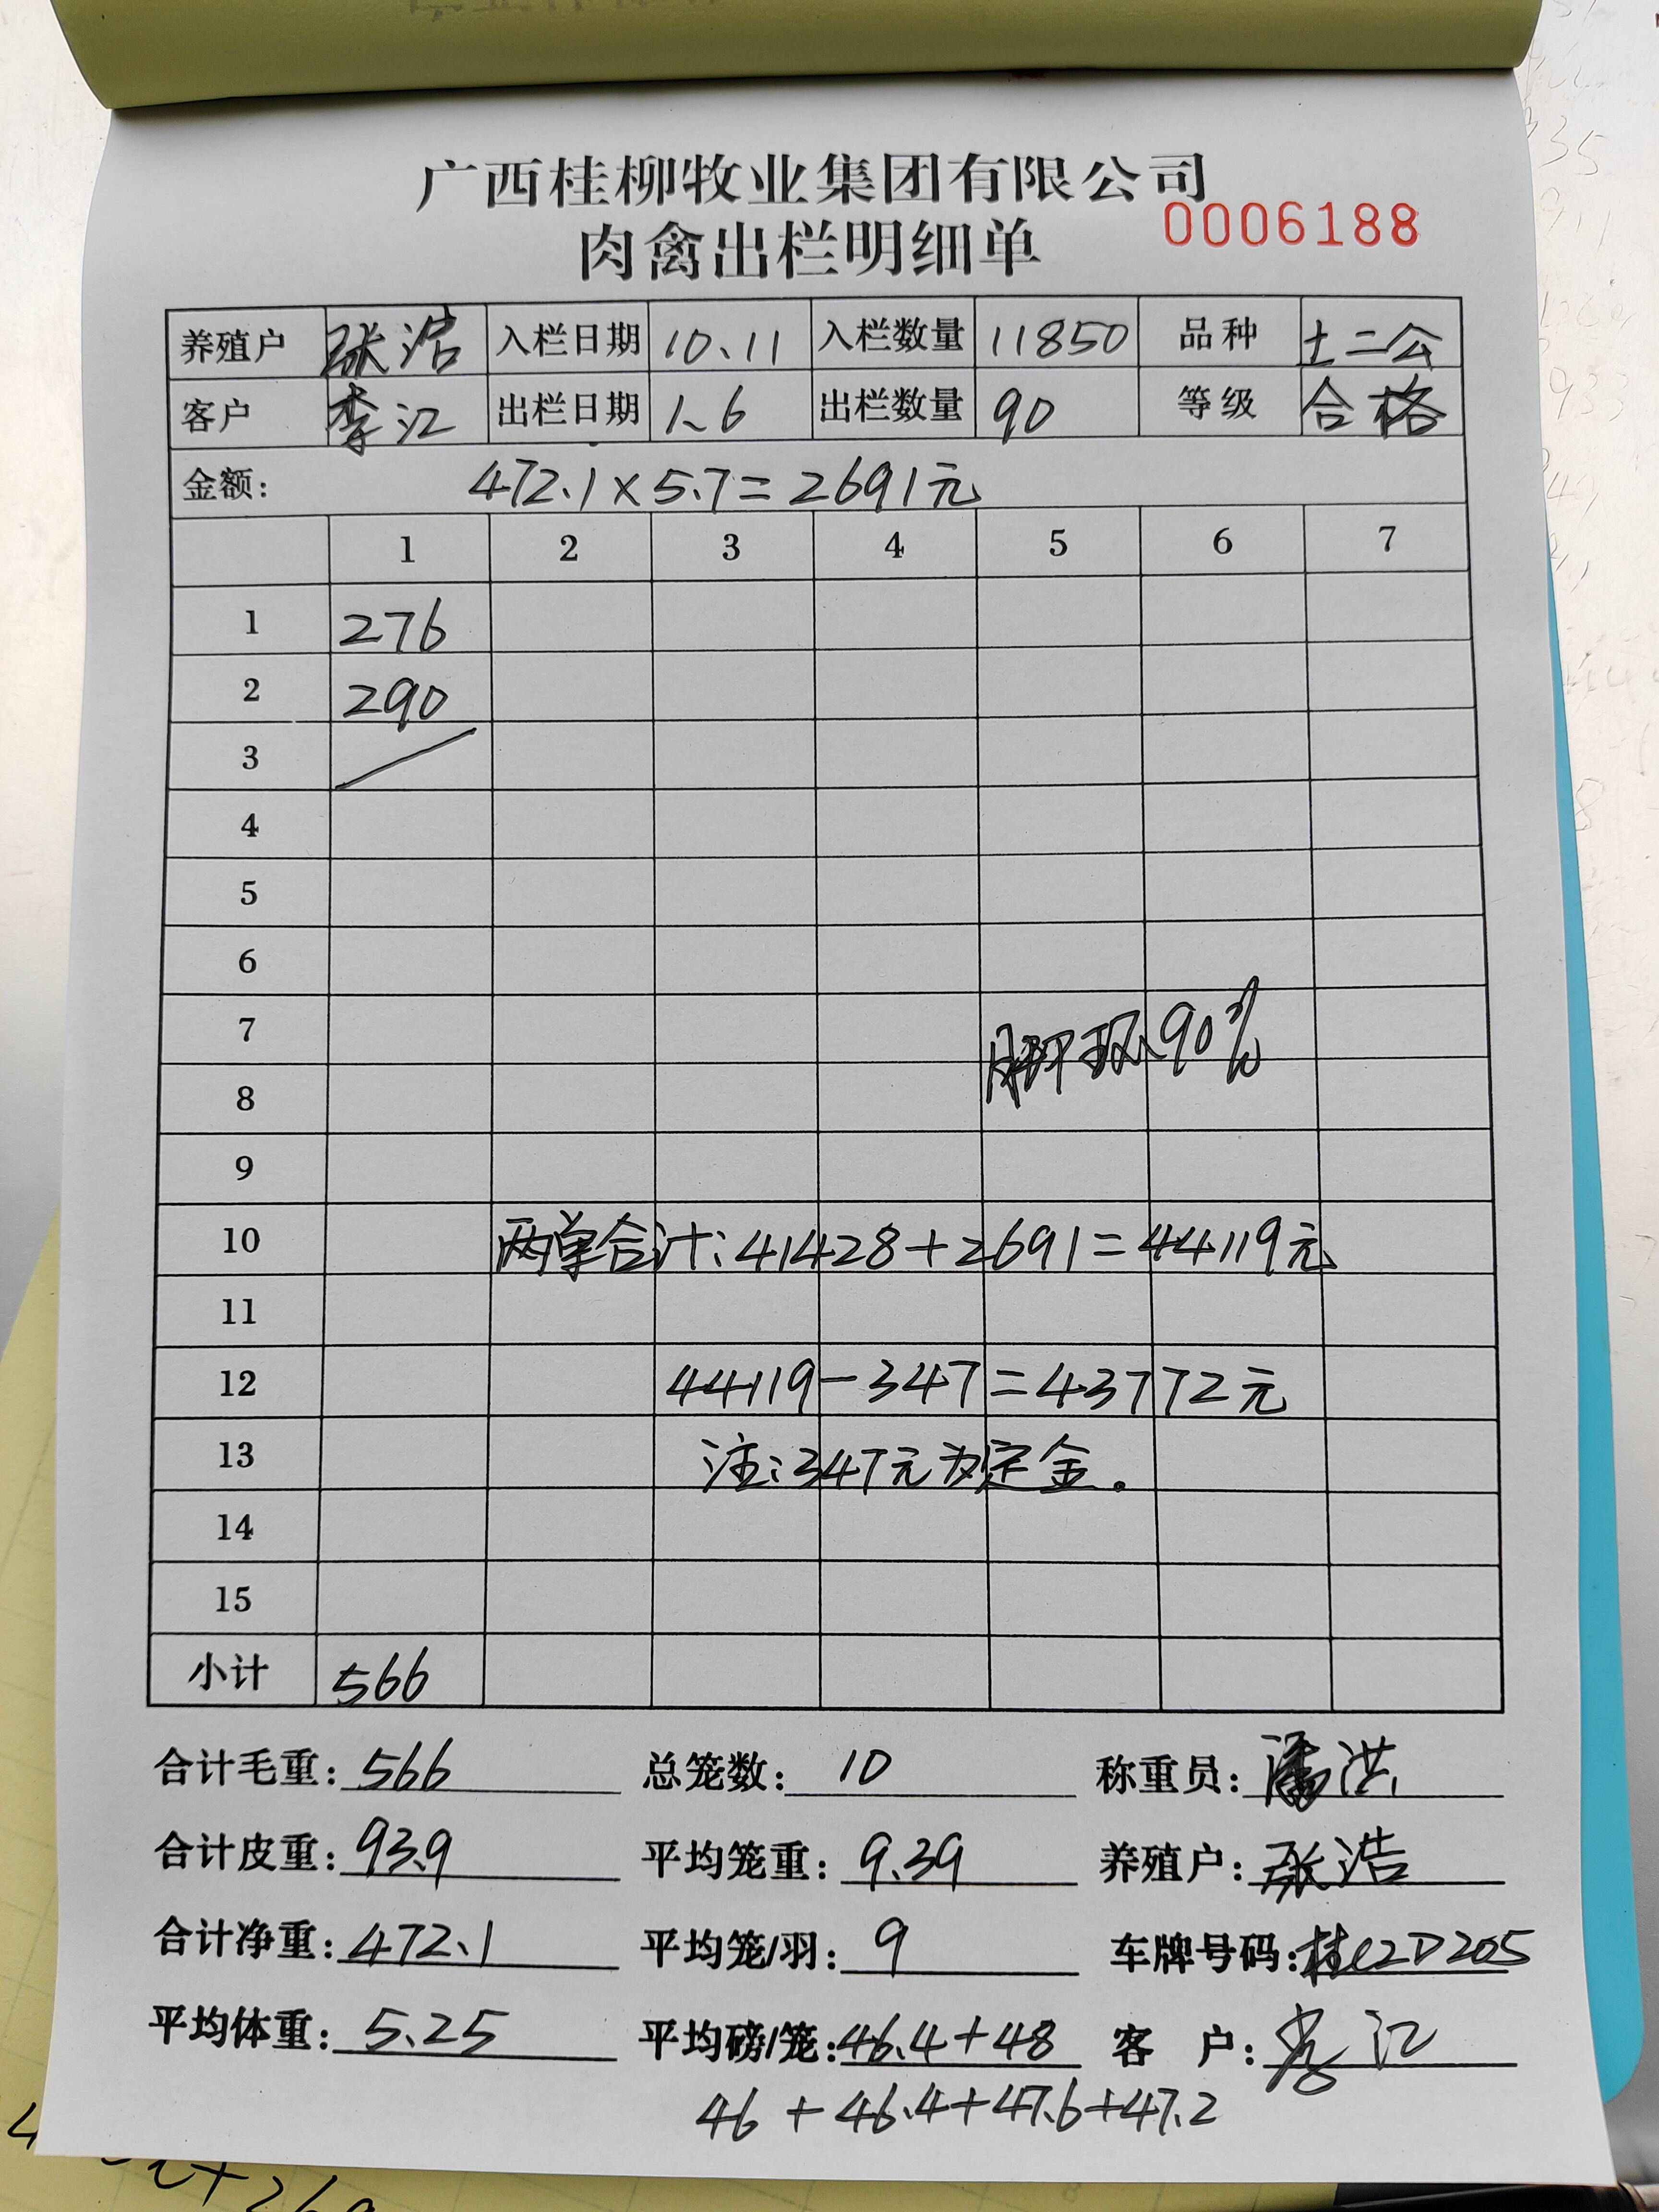 广西桂柳牧业集团有限公司
肉禽出栏明细单 0006188
养殖户 张浩 入栏日期 10.11 入栏数量 11850 品种 土二公
客户 李江 出栏日期 1.6 出栏数量 90 等级 合格
金额: 472.1×5.7=2691元
1 2 3 4 5 6 7
1 276
2 290
3
4
5
6
7 90%
8
9
10 两单合计:41428+2691=44119元
11
12 44119-347=43772元
13 注:347元为定金。
14
15
小计 566
合计毛重: 566 总笼数: 10 称重员: 潘洪
合计皮重: 93.9 平均笼重: 9.39 养殖户: 张浩
合计净重: 472.1 平均笼/羽: 9 车牌号码: 桂C2D205
平均体重: 5.25 平均磅/笼: 46.4+48 客 户: 李江
46+46.4+47.6+47.2